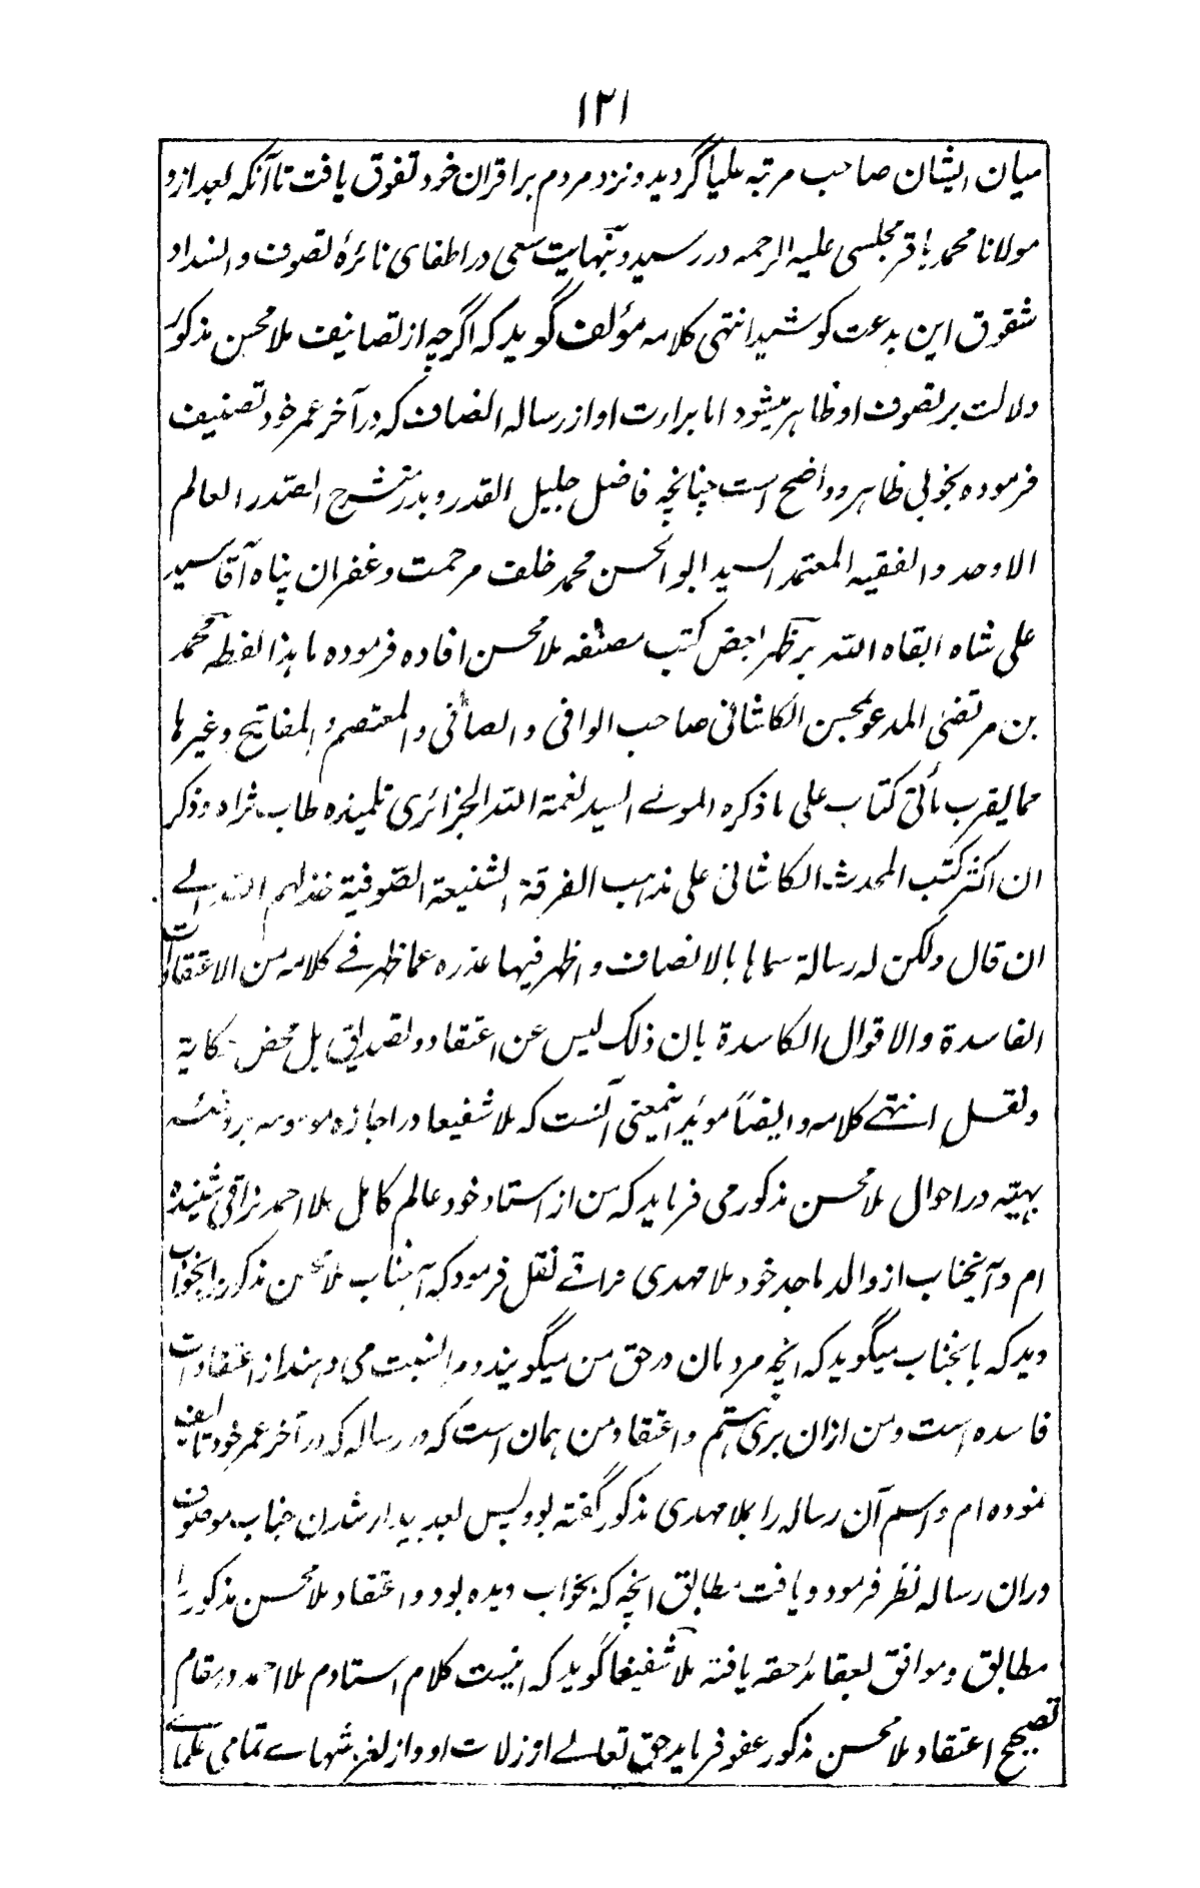 ١٢١
میان ایشان صاحب مرتبه علیا گردید و نزد مردم بر اقران خود تفوق یافت تا آنکه بعد ازو
مولانا محمد باقر مجلسی علیه الرحمه در رسید و بنهایت سعی در اطفای نائرهٔ تصوف و انسداد
شقوق این بدعت کوشید انتهی کلامه مؤلف گوید که اگرچه از تصانیف ملا محسن مذکور
دلالت بر تصوف او ظاهر میشود اما براءت او از رساله انصاف که در آخر عمر خود تصنیف
فرموده بخوبی ظاهر و واضح است چنانچه فاضل جلیل القدر و بدر منشرح الصدر العالم
الاوحد والفقیه المعتمد السید ابو الحسن محمد خلف مرحمت و غفران پناه آقا سید
علی شاه ابقاه الله بر ظهر بعض کتب مصنفه ملا محسن افاده فرموده ما هذا لفظه محمد
بن مرتضی المدعو بمحسن الکاشانی صاحب الوافی و الصافی و المعتصم و المفاتیح و غیرها
مما یقرب مأتی کتاب علی ما ذکره المولے السید نعمة الله الجزائری تلمیذه طاب ثراه و ذکر
ان اکثر کتب المحدث الکاشانی علی مذهب الفرقة الشنیعة الصوفیة خذلهم الله الے
ان قال ولکن له رسالة سماها بالانصاف و اظهر فیها عذره عما ظهر فے کلامه من الاعتقادات
الفاسدة والاقوال الکاسدة بان ذلک لیس عن اعتقاد و تصدیق بل محض حکایة
و نقل انتهے کلامه و ایضاً موئید اینمعنی آنست که ملا شفیعا در اجازه موسومه بروضه
بهیّه در احوال ملا محسن مذکور می فرماید که من از استاد خود عالم کامل ملا احمد نراقی شنیده
ام و آنجناب از والد ماجد خود ملا مهدی نراقے نقل فرمود که آنجناب ملا محسن مذکور را بخواب
دید که بآنجناب میگوید که انچه مردمان در حق من میگویند و مرا نسبت می دهند از اعتقادات
فاسده است و من ازان بری هستم و اعتقاد من همان است که در رساله که در آخر عمر خود تالیف
نموده ام و اسم آن رساله را بملا مهدی مذکور گفته بود پس بعد بیدار شدن جناب موصوف
دران رساله نظر فرمود و یافت مطابق انچه که بخواب دیده بود و اعتقاد ملا محسن مذکور را
مطابق و موافق بعقائد حقه یافته ملا شفیعا گوید که اینست کلام استادم ملا احمد در مقام
تصحیح اعتقاد ملا محسن مذکور عفو فرماید حق تعالے از زلات او و از لغزشهاے تمامی علماے